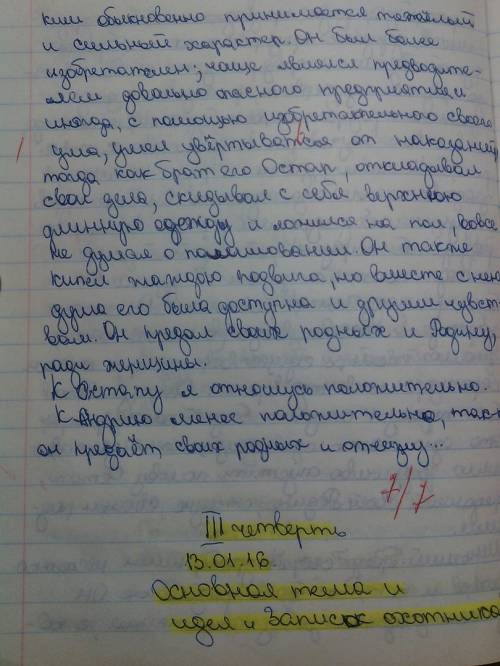 ким обыкновенно принимается тяжелый
и сильный характер. Он был более
изобретателен; чаще являлся предводите-
лем довольно опасного предприятия и
иногда, с помощью изобретательного своего
ума, умел увёртываться от наказания,
тогда как брат его Остап, откладывал
свои дела, скидывал с себя верхнюю
длинную одежду и ложился на пол, вовсе
не думая о помиловании. Он также
кипел жаждою подвига, но вместе с нею
душа его была доступна и другим чувст-
вам. Он предал своих родных и Родину,
ради женщины.
К Остапу я отношусь положительно.
К Андрию менее положительно, так к
он предаёт своих родных и отчизну...
7/7
III четверть
13.01.16.
Основная тема и
идея и Записок охотника